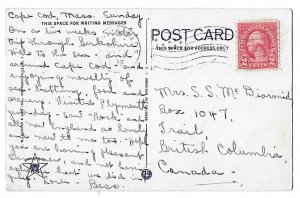 Cape Cod, Mass. Sunday
THIS SPACE FOR WRITING MESSAGES
On a two weeks
trip through Berkshire
Hills to the sea - and
around Cape Cod - and
enjoying novelty of
sea bathing, fish and
scenery. Visited Plymouth
yesterday - saw Rock and
all. New England so lovely
and new to me too. Hope
you are having pleasant
summer, and not having
the heat we did in
Bess.
POST CARD
THIS SPACE FOR ADDRESS ONLY
2 CENTS 2
Mrs. S. S. McDiarmid
Box 1047,
Trail,
British Columbia,
Canada.